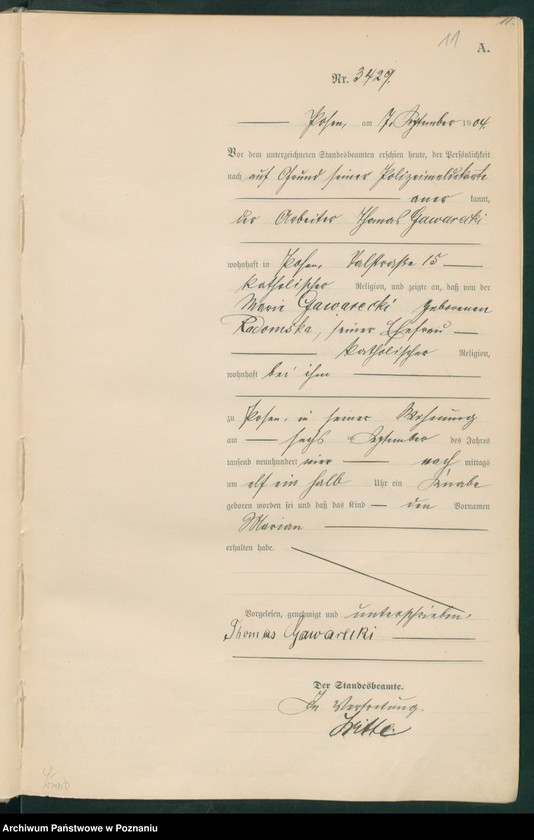 11.
11
A.
Nr. 3429.
Posen, am 7. September 1904.
Vor dem unterzeichneten Standesbeamten erschien heute, der Persönlichkeit
nach auf Grund seiner Polizeimeldekarte
aner kannt,
der Arbeiter Thomas Gawarecki
wohnhaft in Posen, Talstraße 15
katholischer Religion, und zeigte an, daß von der
Marie Gawarecki geborenen
Radomska, seiner Ehefrau
katholischer Religion,
wohnhaft bei ihm
zu Posen, in seiner Wohnung
am sechs ten September des Jahres
tausend neunhundert vier nach mittags
um elf ein halb Uhr ein Knabe
geboren worden sei und daß das Kind den Vornamen
Marian
erhalten habe.
Vorgelesen, genehmigt und unterschrieben.
Thomas Gawarecki
Der Standesbeamte.
In Vertretung.
Witte.
Archiwum Państwowe w Poznaniu